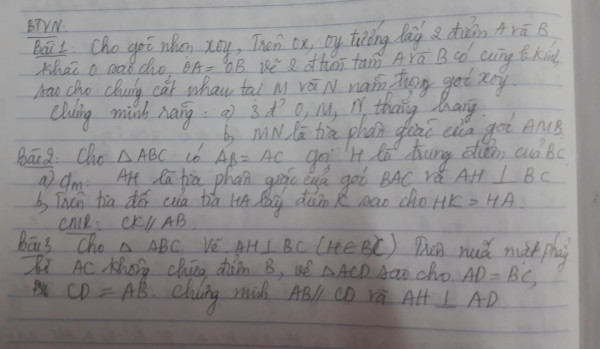 BTVN.
Bài 1. Cho góc nhọn xOy, Trên Ox, Oy tương lấy 2 điểm A và B
khác O sao cho OA = OB vẽ 2 đường tâm A và B có cùng b. kính
sao cho chúng cắt nhau tại M và N nằm trong góc xOy.
Chứng minh rằng: a) 3 đ' O, M, N thẳng hàng
b, MN là tia phân giác của góc AMB
Bài 2: Cho △ ABC có AB = AC gọi H là trung điểm của BC
a) Cm: AH là tia phân giác của góc BAC và AH ⊥ BC
b, Trên tia đối của tia HA lấy điểm K sao cho HK = HA
CMR: CK // AB.
Bài 3. Cho △ ABC Vẽ AH ⊥ BC (H ∈ BC) Trên nửa mặt phẳng
bờ AC không chứa điểm B, vẽ △ ACD sao cho AD = BC,
CD = AB. Chứng minh AB // CD và AH ⊥ AD